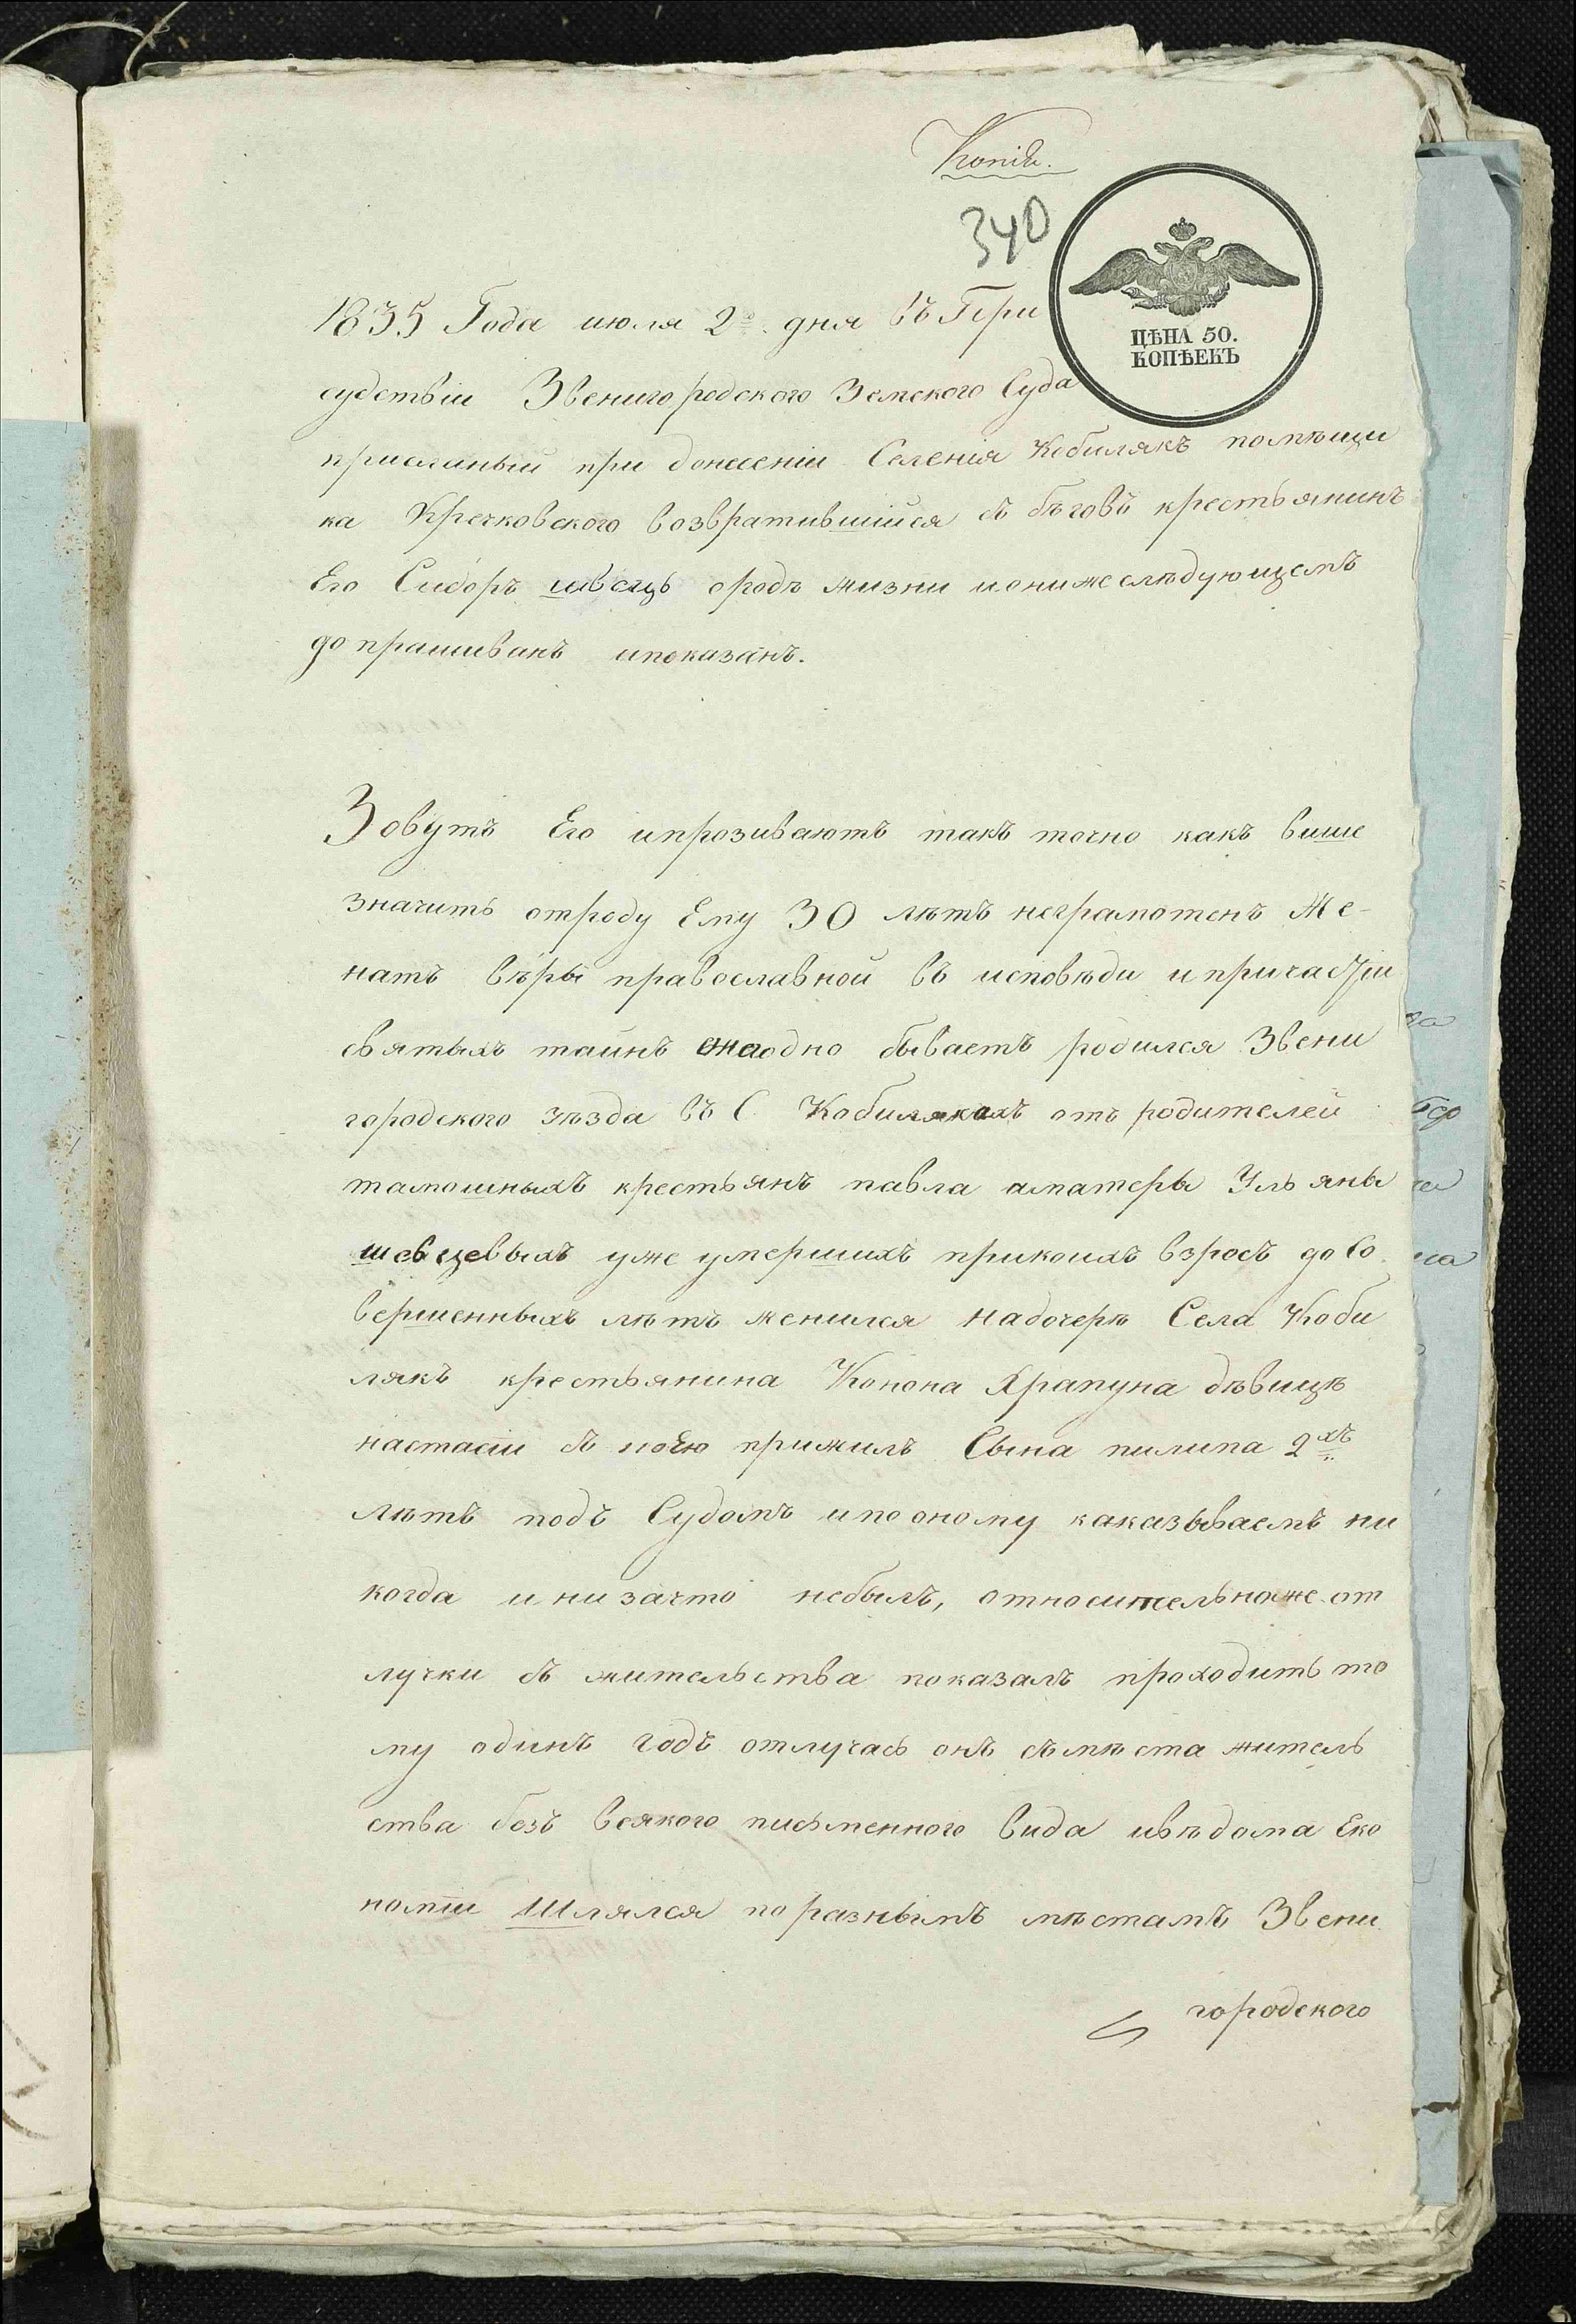 Копія.
340
ЦѢНА 50.
КОПѢЕКЪ
1835 Года июля 2го дня въ При
судствіи Звенигородского Земского Суда
присланый при донесеніи Селенія Кобилякъ помѣщи
ка Кречковского возвратившійся съ бѣговъ крестьянинъ
Его Сидоръ швець ородѣ жизни иониже слѣдующемъ
допрашиванъ ипоказанъ.
Зовутъ Его ипрозиваютъ такъ точно какъ више
значить отроду Ему 30 лѣтъ неграмотенъ Же-
натъ вѣры православной въ исповѣди и причастіи
святыхъ тайнъ ежегодно бываетъ родился Звени
городского уѣзда въ С Кобилякахъ отъ родителей
тамошныхъ крестьянъ павла аматеры Ульяны
шевцевыхъ уже умершихъ прикоихъ взросъ до Со
вершенныхъ лѣтъ женился надочерѣ Села Коби
лякъ крестьянина Конона Храпуна дѣвицѣ
настасіи съ коею прижилъ Сына пилипа 2хъ
лѣтъ подъ Судомъ ипооному наказываемъ ни
когда и низачто небылъ, относительноже от
лучки съ жительства показалъ проходить то
му одинъ годъ отлучась онъ съмѣста житель
ства безъ всякого писменного вида ивѣдома Еко
номіи Шлялся поразнымъ мѣстамъ Звени
городского